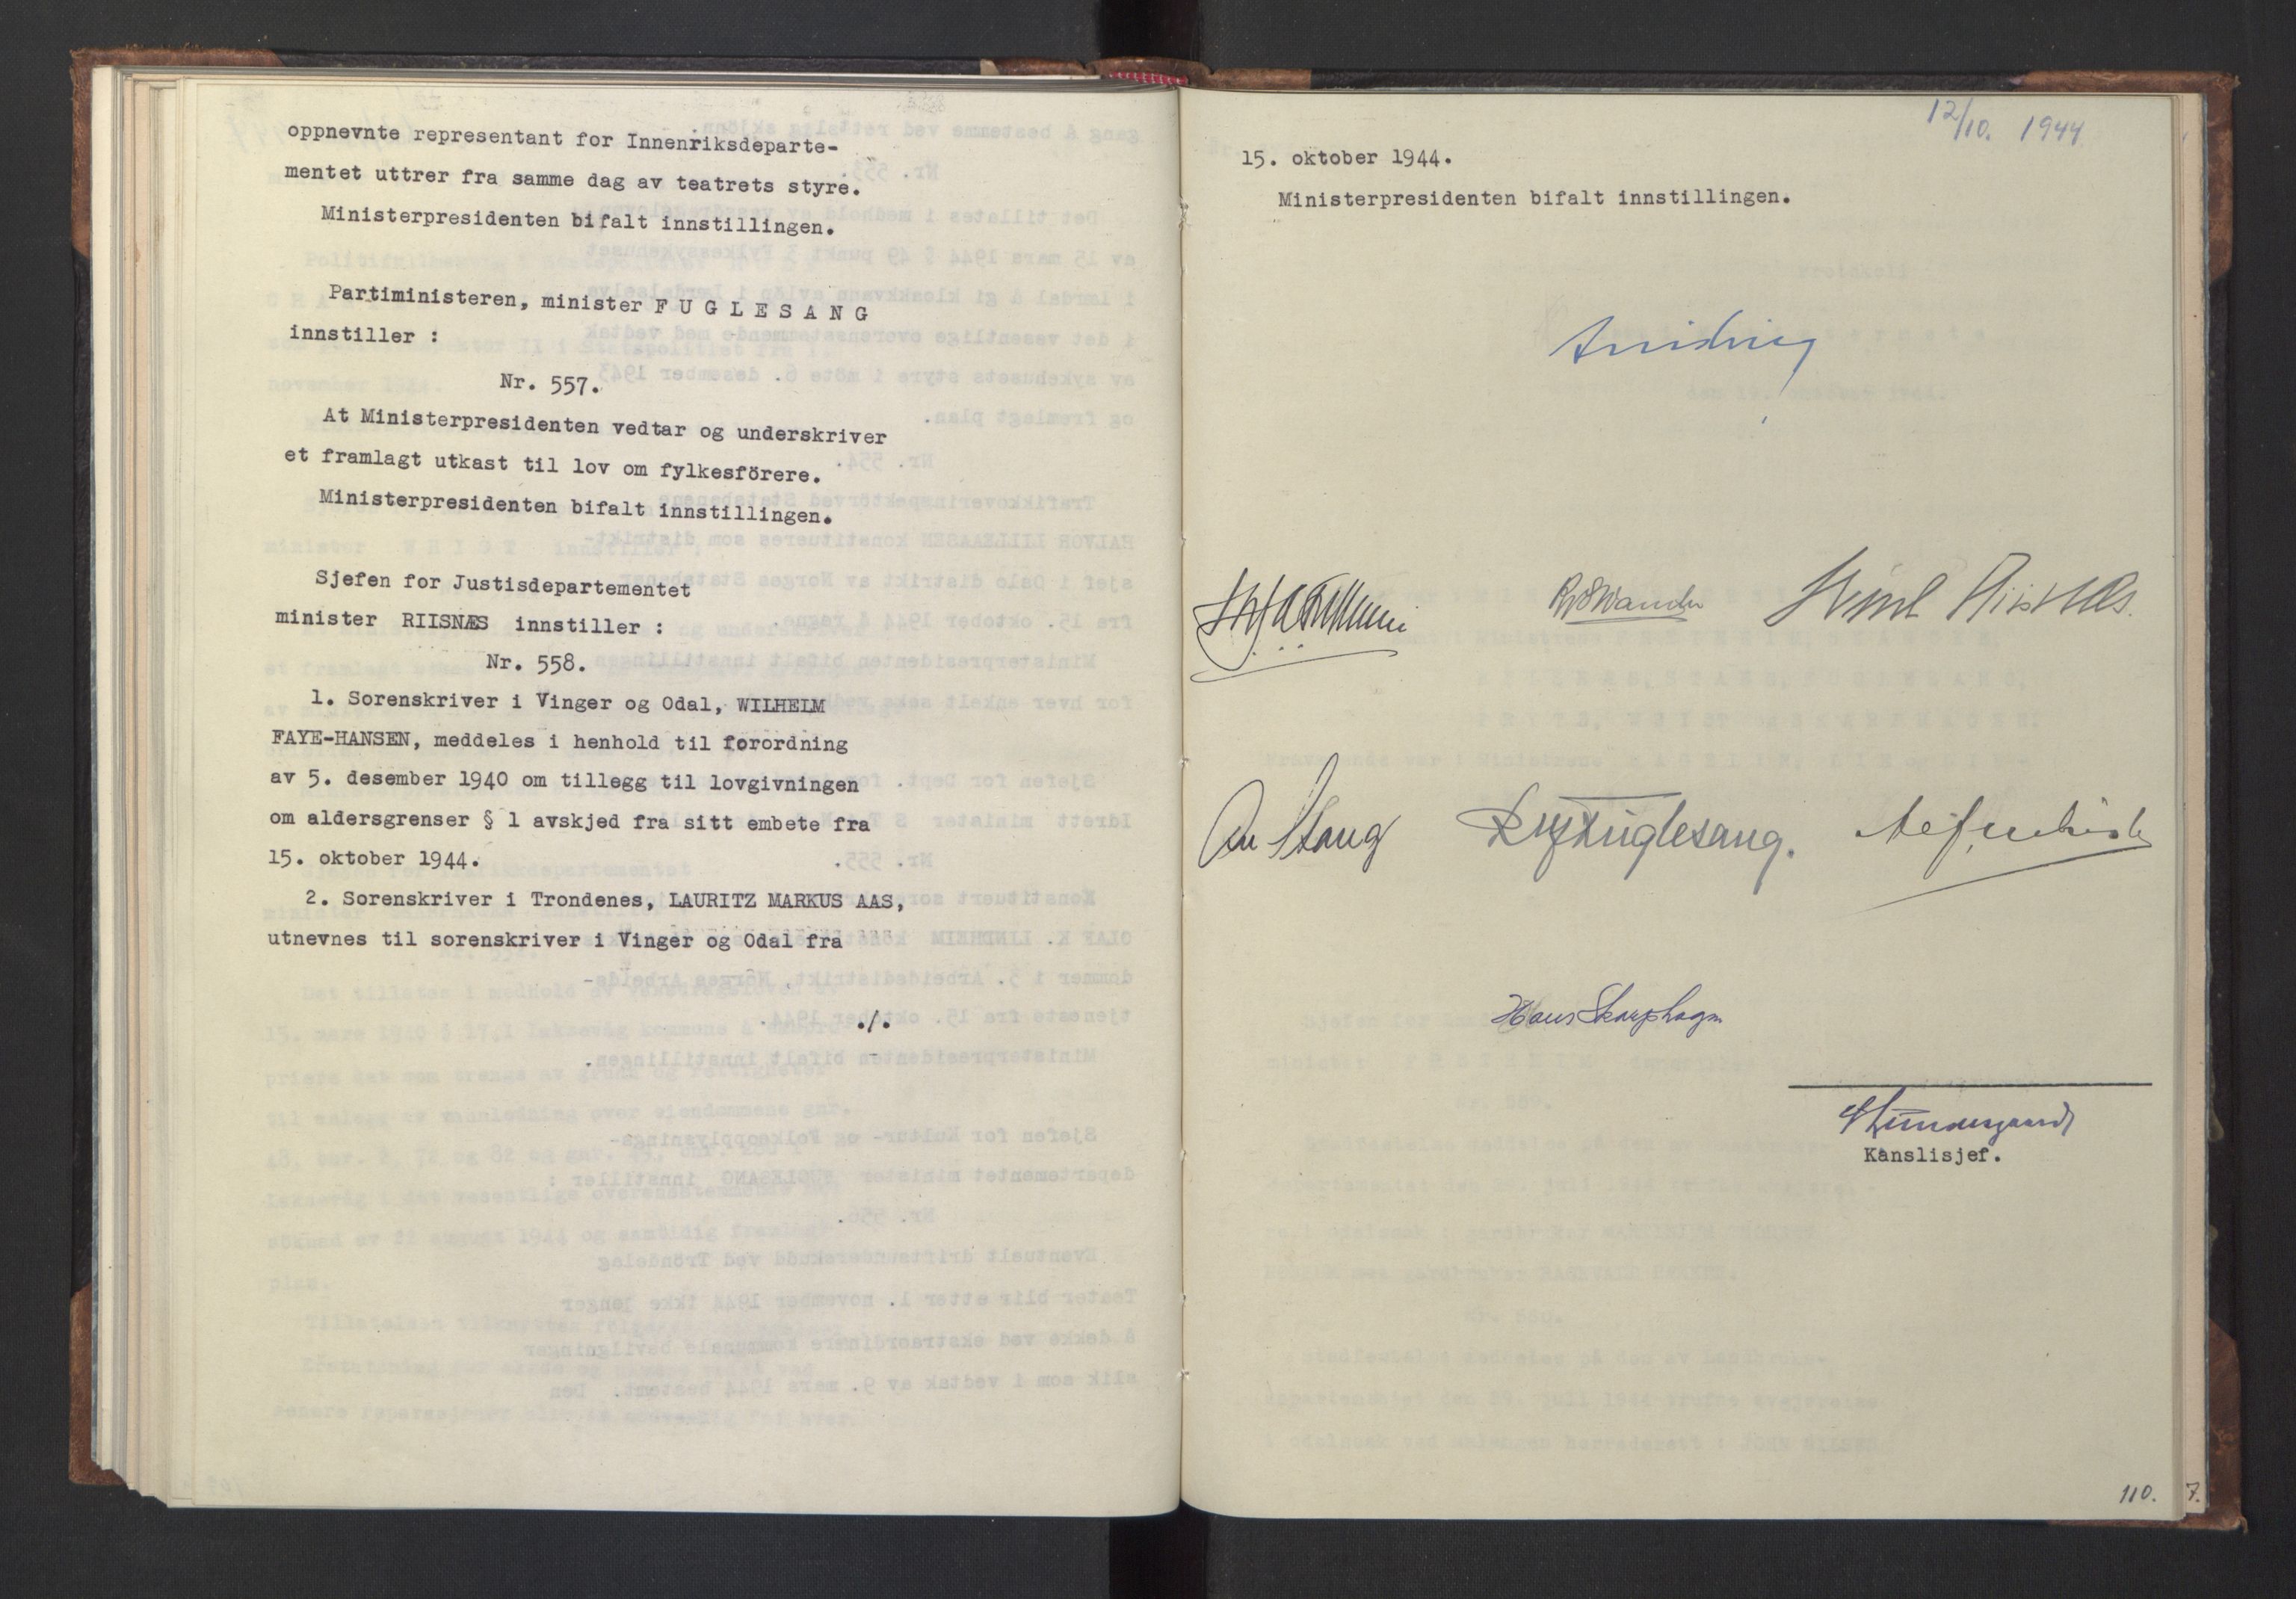 oppnevnte representant for Innenriksdeparte-
mentet uttrer fra samme dag av teatrets styre.
Ministerpresidenten bifalt innstillingen.
Partiministeren, minister F U G L E S A N G
innstiller :
Nr. 557.
At Ministerpresidenten vedtar og underskriver
et framlagt utkast til lov om fylkesförere.
Ministerpresidenten bifalt innstillingen.
Sjefen for Justisdepartementet
minister RIISNÆS innstiller :
Nr. 558.
1. Sorenskriver i Vinger og Odal, WILHELM
FAYE-HANSEN, meddeles i henhold til forordning
av 5. desember 1940 om tillegg til lovgivningen
om aldersgrenser § 1 avskjed fra sitt embete fra
15. oktober 1944.
2. Sorenskriver i Trondenes, LAURITZ MARKUS AAS,
utnevnes til sorenskriver i Vinger og Odal fra
./.
12/10. 1944
15. oktober 1944.
Ministerpresidenten bifalt innstillingen.
Stang
Fuglesang.
Hans Skarphagen
Kanslisjef.
110.
7.